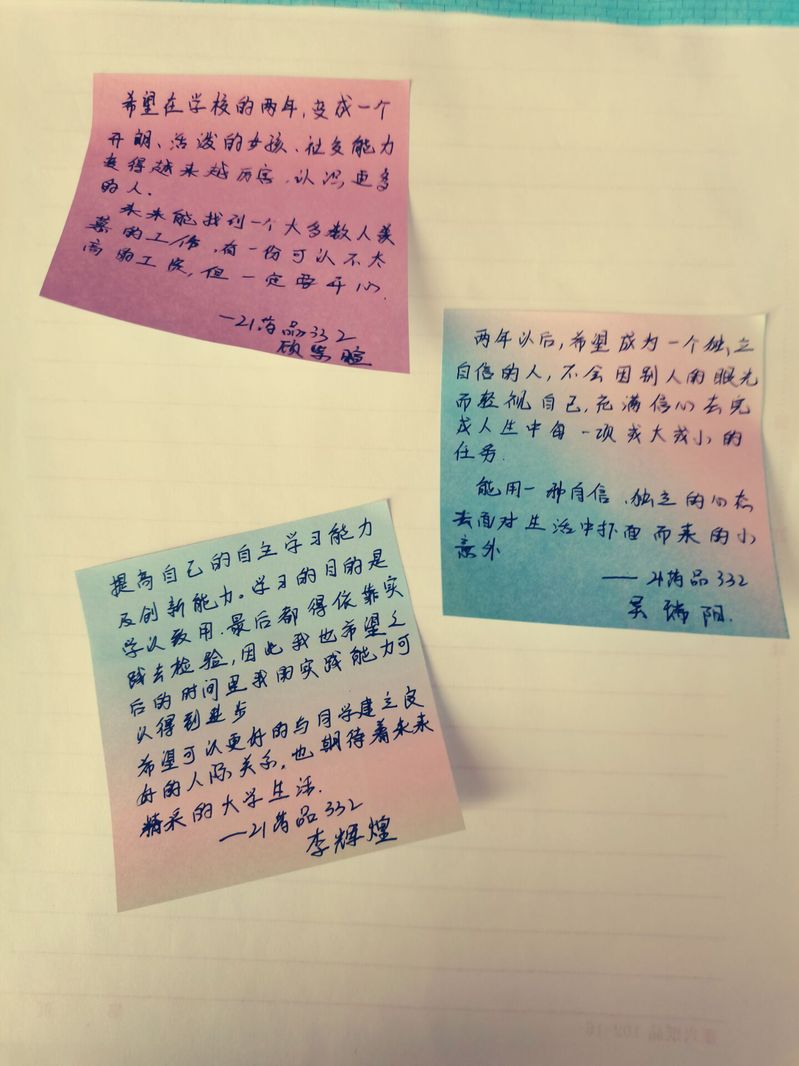 希望在学校的两年，变成一个
开朗、活泼的女孩、社交能力
变得越来越厉害，认识更多
的人。
未来能找到一个大多数人羡
慕的工作，有一份可以不太
高的工资，但一定要开心.
—21药品332
两年以后，希望成为一个独立
自信的人，不会因别人的眼光
而轻视自己，充满信心去完
成人生中每一项或大或小的
任务.
能用一种自信、独立的心态
去面对生活中扑面而来的小
意外
——21药品332
吴瑞阳.
提高自己的自主学习能力
及创新能力。学习的目的是
学以致用.最后都得依靠实
践去检验，因此我也希望之
后的时间里我的实践能力可
以得到进步
希望可以更好的与同学建立良
好的人际关系，也期待着未来
精采的大学生活.
—21药品332
李辉煌